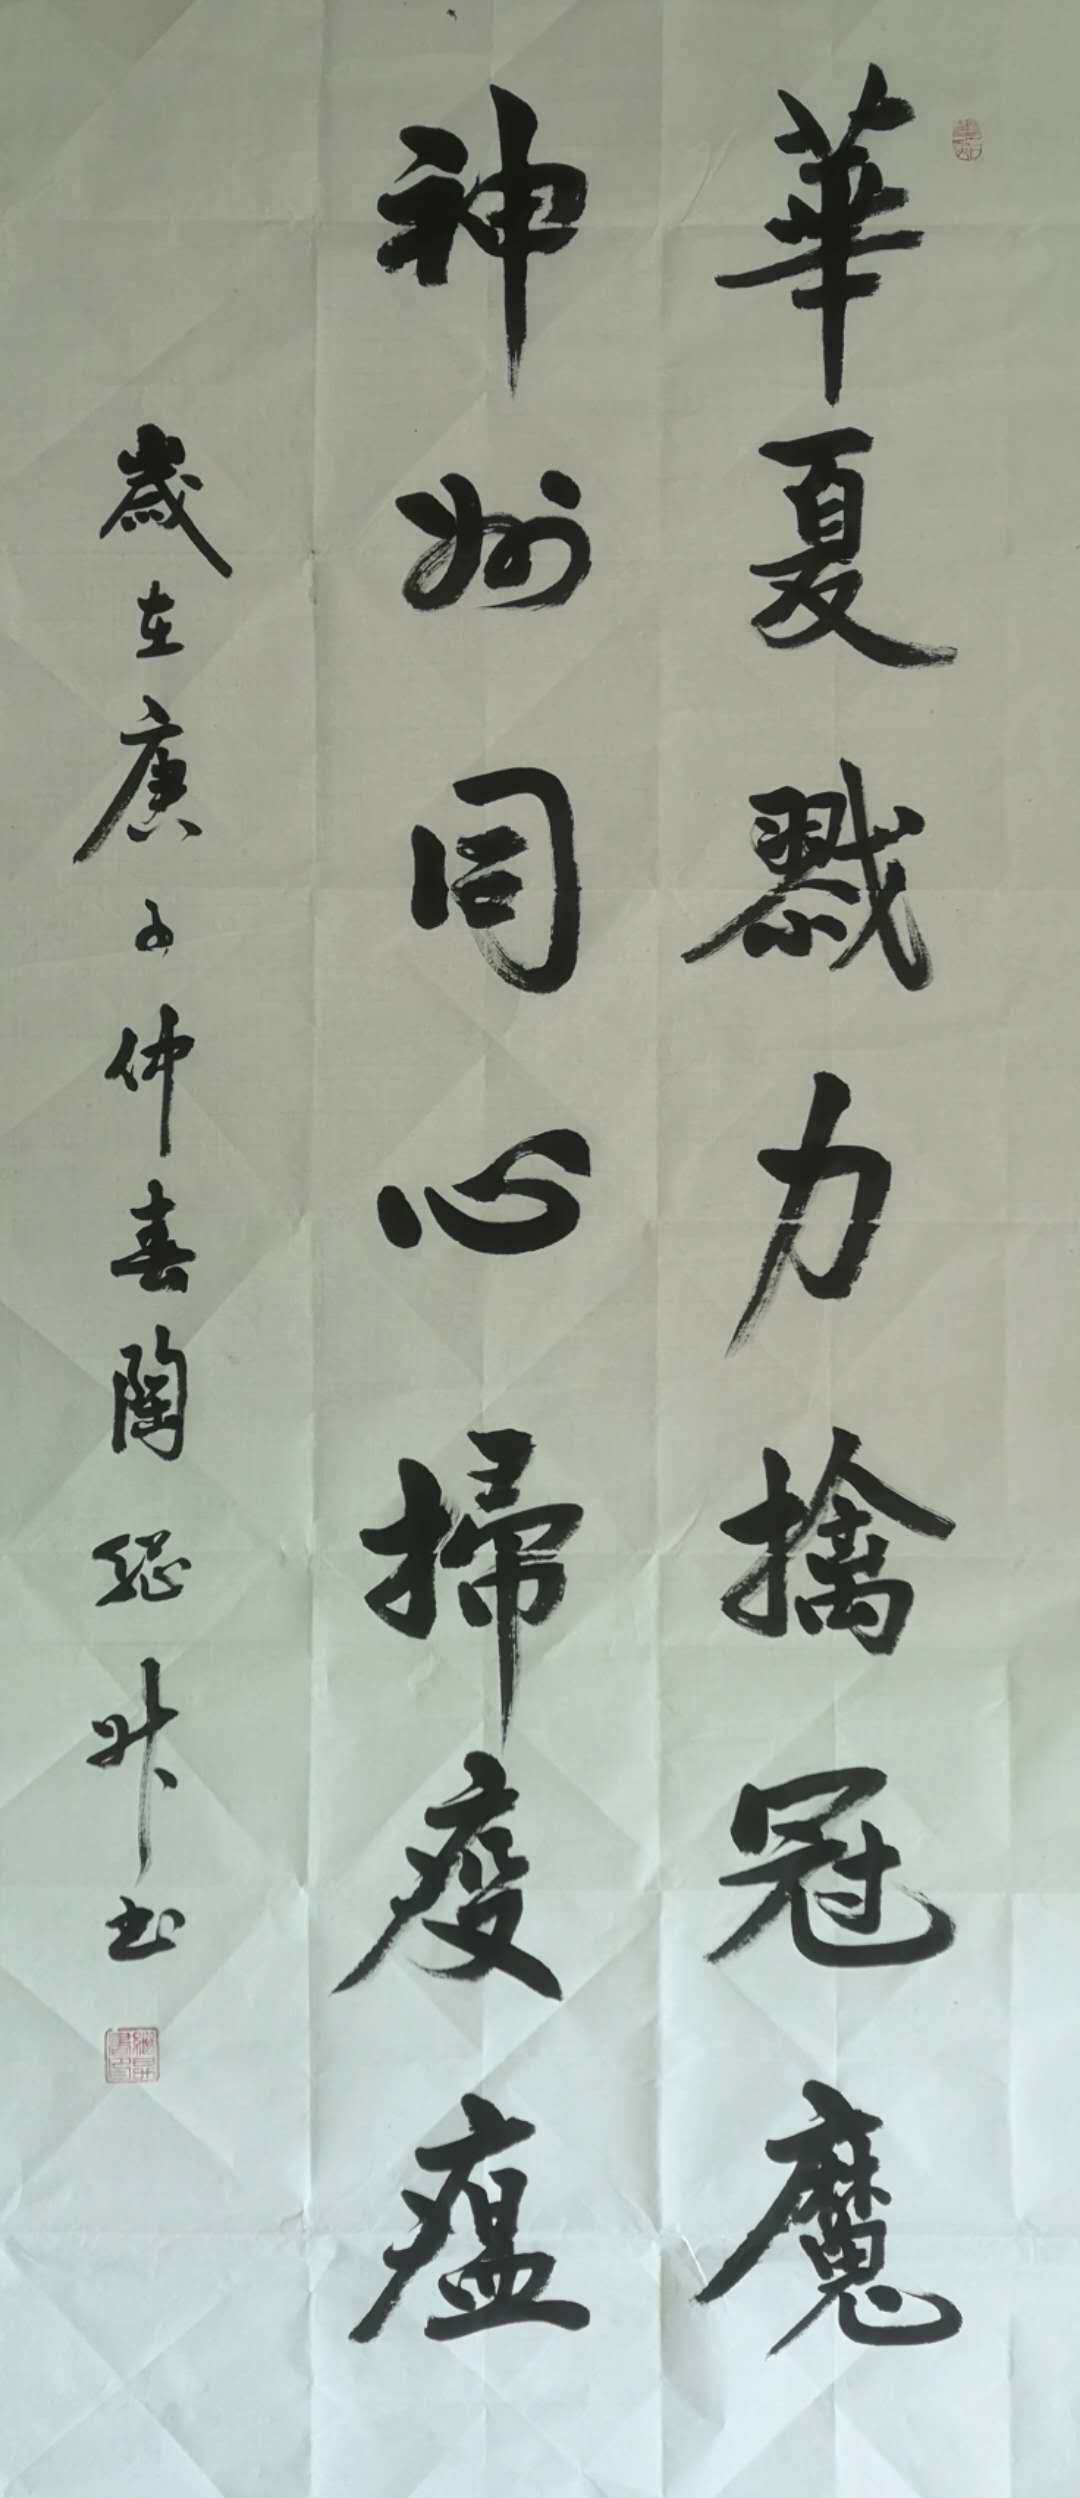 華夏戮力擒冠魔
神州同心掃疫瘟
歲在庚子仲春陶继升书